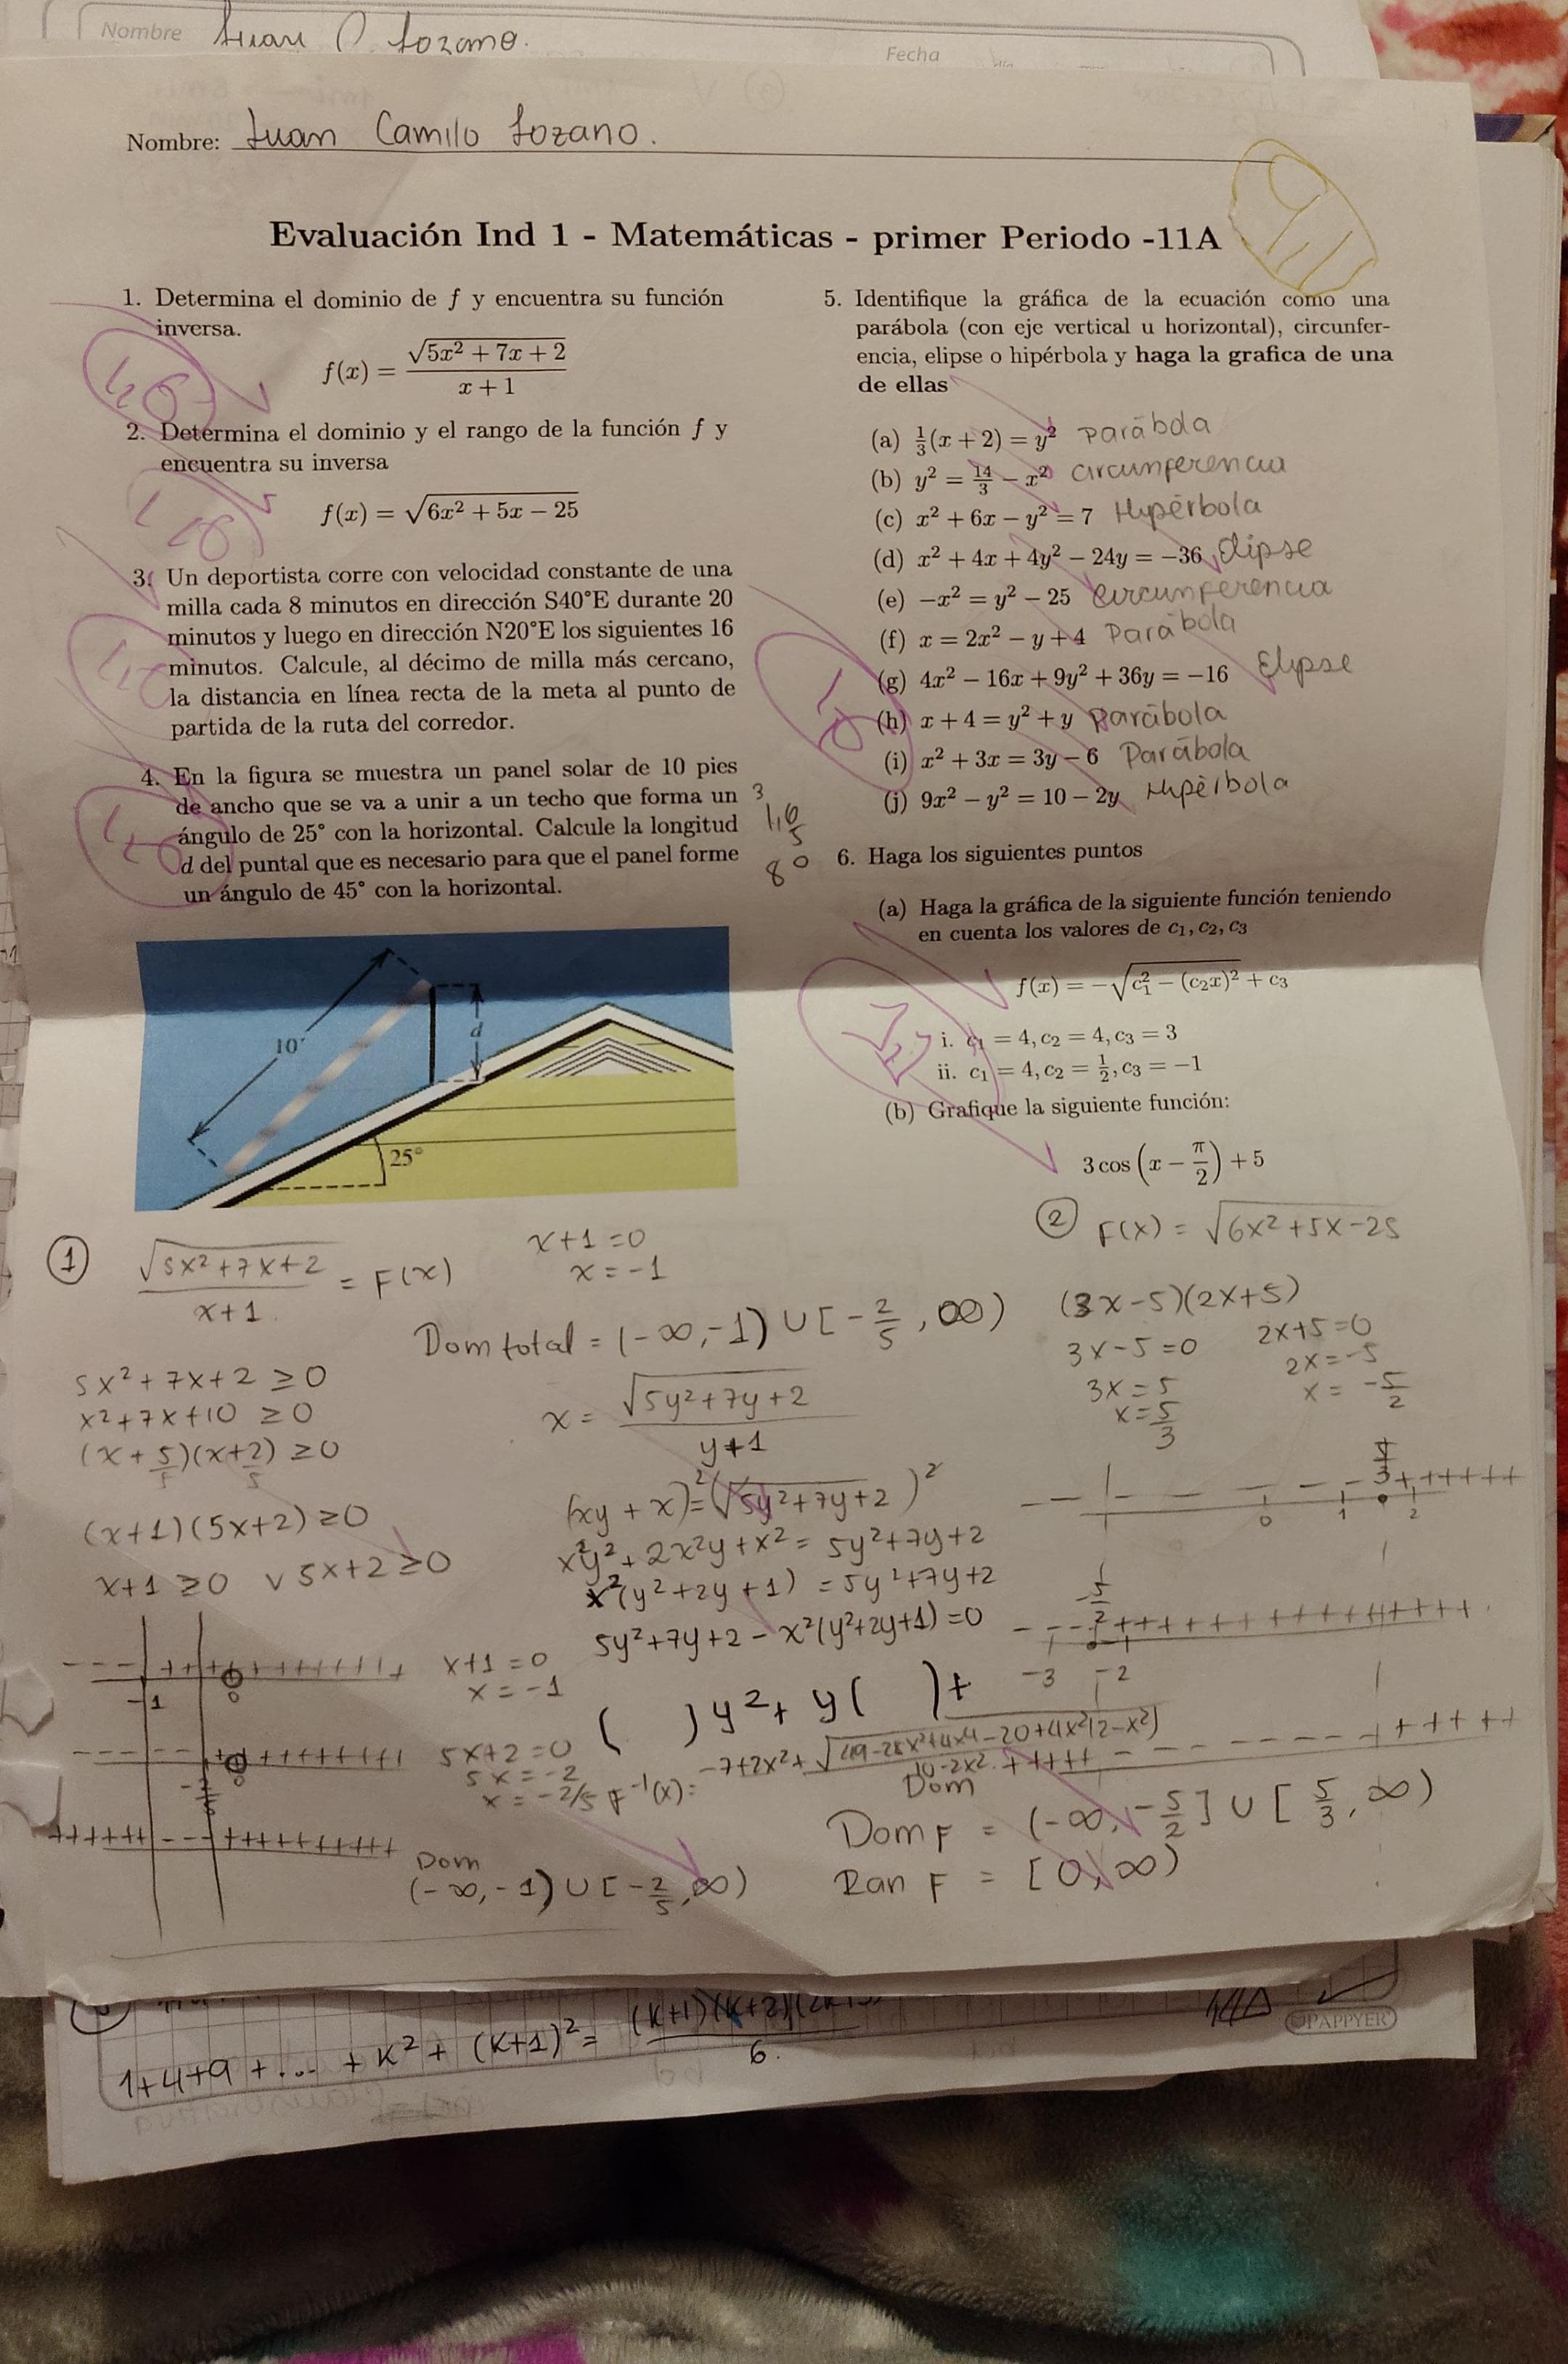 Nombre Juan C Lozano.
Fecha
Nombre: Juan Camilo Lozano.
Evaluación Ind 1 - Matemáticas - primer Periodo -11A
1. Determina el dominio de f y encuentra su función
inversa.
f(x) = √(5x² + 7x + 2) / (x + 1)
2. Determina el dominio y el rango de la función f y
encuentra su inversa
f(x) = √(6x² + 5x − 25)
3. Un deportista corre con velocidad constante de una
milla cada 8 minutos en dirección S40°E durante 20
minutos y luego en dirección N20°E los siguientes 16
minutos. Calcule, al décimo de milla más cercano,
la distancia en línea recta de la meta al punto de
partida de la ruta del corredor.
4. En la figura se muestra un panel solar de 10 pies
de ancho que se va a unir a un techo que forma un
ángulo de 25° con la horizontal. Calcule la longitud
d del puntal que es necesario para que el panel forme
un ángulo de 45° con la horizontal.
10'
d
25°
5. Identifique la gráfica de la ecuación como una
parábola (con eje vertical u horizontal), circunfer-
encia, elipse o hipérbola y haga la grafica de una
de ellas
(a) 1/3(x + 2) = y² Parábola
(b) y² = 14/3 − x² circunferencia
(c) x² + 6x − y² = 7 Hipérbola
(d) x² + 4x + 4y² − 24y = −36 Elipse
(e) −x² = y² − 25 circunferencia
(f) x = 2x² − y + 4 Parábola
(g) 4x² − 16x + 9y² + 36y = −16 Elipse
(h) x + 4 = y² + y Parábola
(i) x² + 3x = 3y − 6 Parábola
(j) 9x² − y² = 10 − 2y Hipérbola
6. Haga los siguientes puntos
(a) Haga la gráfica de la siguiente función teniendo
en cuenta los valores de c₁, c₂, c₃
f(x) = −√(c₁² − (c₂x)²) + c₃
i. c₁ = 4, c₂ = 4, c₃ = 3
ii. c₁ = 4, c₂ = 1/2, c₃ = −1
(b) Grafique la siguiente función:
3 cos(x − π/2) + 5
1 √(5x²+7x+2) / (x+1) = F(x)
x+1=0
x=-1
Dom total = (-∞,-1) ∪ [-2/5, ∞)
5x²+7x+2 ≥0
x²+7x+10 ≥0
(x+5/5)(x+2/5) ≥0
(x+1)(5x+2) ≥0
x+1 ≥0 ∨ 5x+2 ≥0
x+1 =0
x=-1
-1 0
5x+2=0
5x=-2
x=-2/5
Dom
(-∞,-1) ∪ [-2/5, ∞)
x = √(5y²+7y+2) / (y+1)
(xy+x)² = (√(5y²+7y+2))²
x²y²+2x²y+x² = 5y²+7y+2
x²(y²+2y+1) = 5y²+7y+2
5y²+7y+2 - x²(y²+2y+1) =0
( )y²+ y( )+
F⁻¹(x):
2 F(x) = √(6x²+5x-25)
(3x-5)(2x+5)
3x-5=0
3x=5
x=5/3
2x+5=0
2x=-5
x= -5/2
5/3
0 1 2
-5/2
-3 -2
Dom
Dom F = (-∞, -5/2] ∪ [5/3, ∞)
Ran F = [0, ∞)
1+4+9+... +K²+ (K+1)² = (K+1)(K+2)
6.
PAPPYER